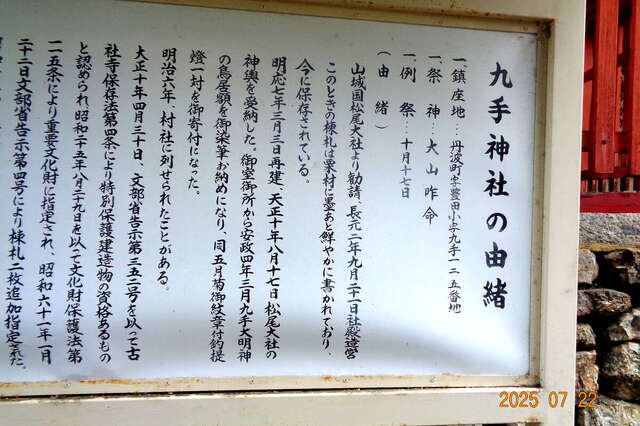 九手神社の由緒
一、鎮座地…丹波町字豊田小字九手一二五番地
一、祭神…大山咋命
一、例祭…十月十七日
（由緒）
山城国松尾大社より勧請、長元二年九月二十一日社殿造営
このときの棟札は栗村に墨あと鮮やかに書かれており、
今に保存されている。
明応七年三月三日再建 天正十年八月十七日 松尾大社の
神輿を受納した。御室御所から安政四年三月九手大明神
の鳥居額を御染筆お納めになり、同五月菊御紋章付釣提
燈一対を御寄付になった。
明治六年、村社に列せられたことがある。
大正十年四月三十日、文部省告示第三五二号を以って古
社寺保存法第四条により特別保護建造物の資格あるもの
と認められ、昭和二十五年八月二十九日を以って文化財保護法第
一一五条により重要文化財に指定され、昭和六十一年一月
二十二日文部省告示第四号により棟札二枚追加指定された。
2025 07 22